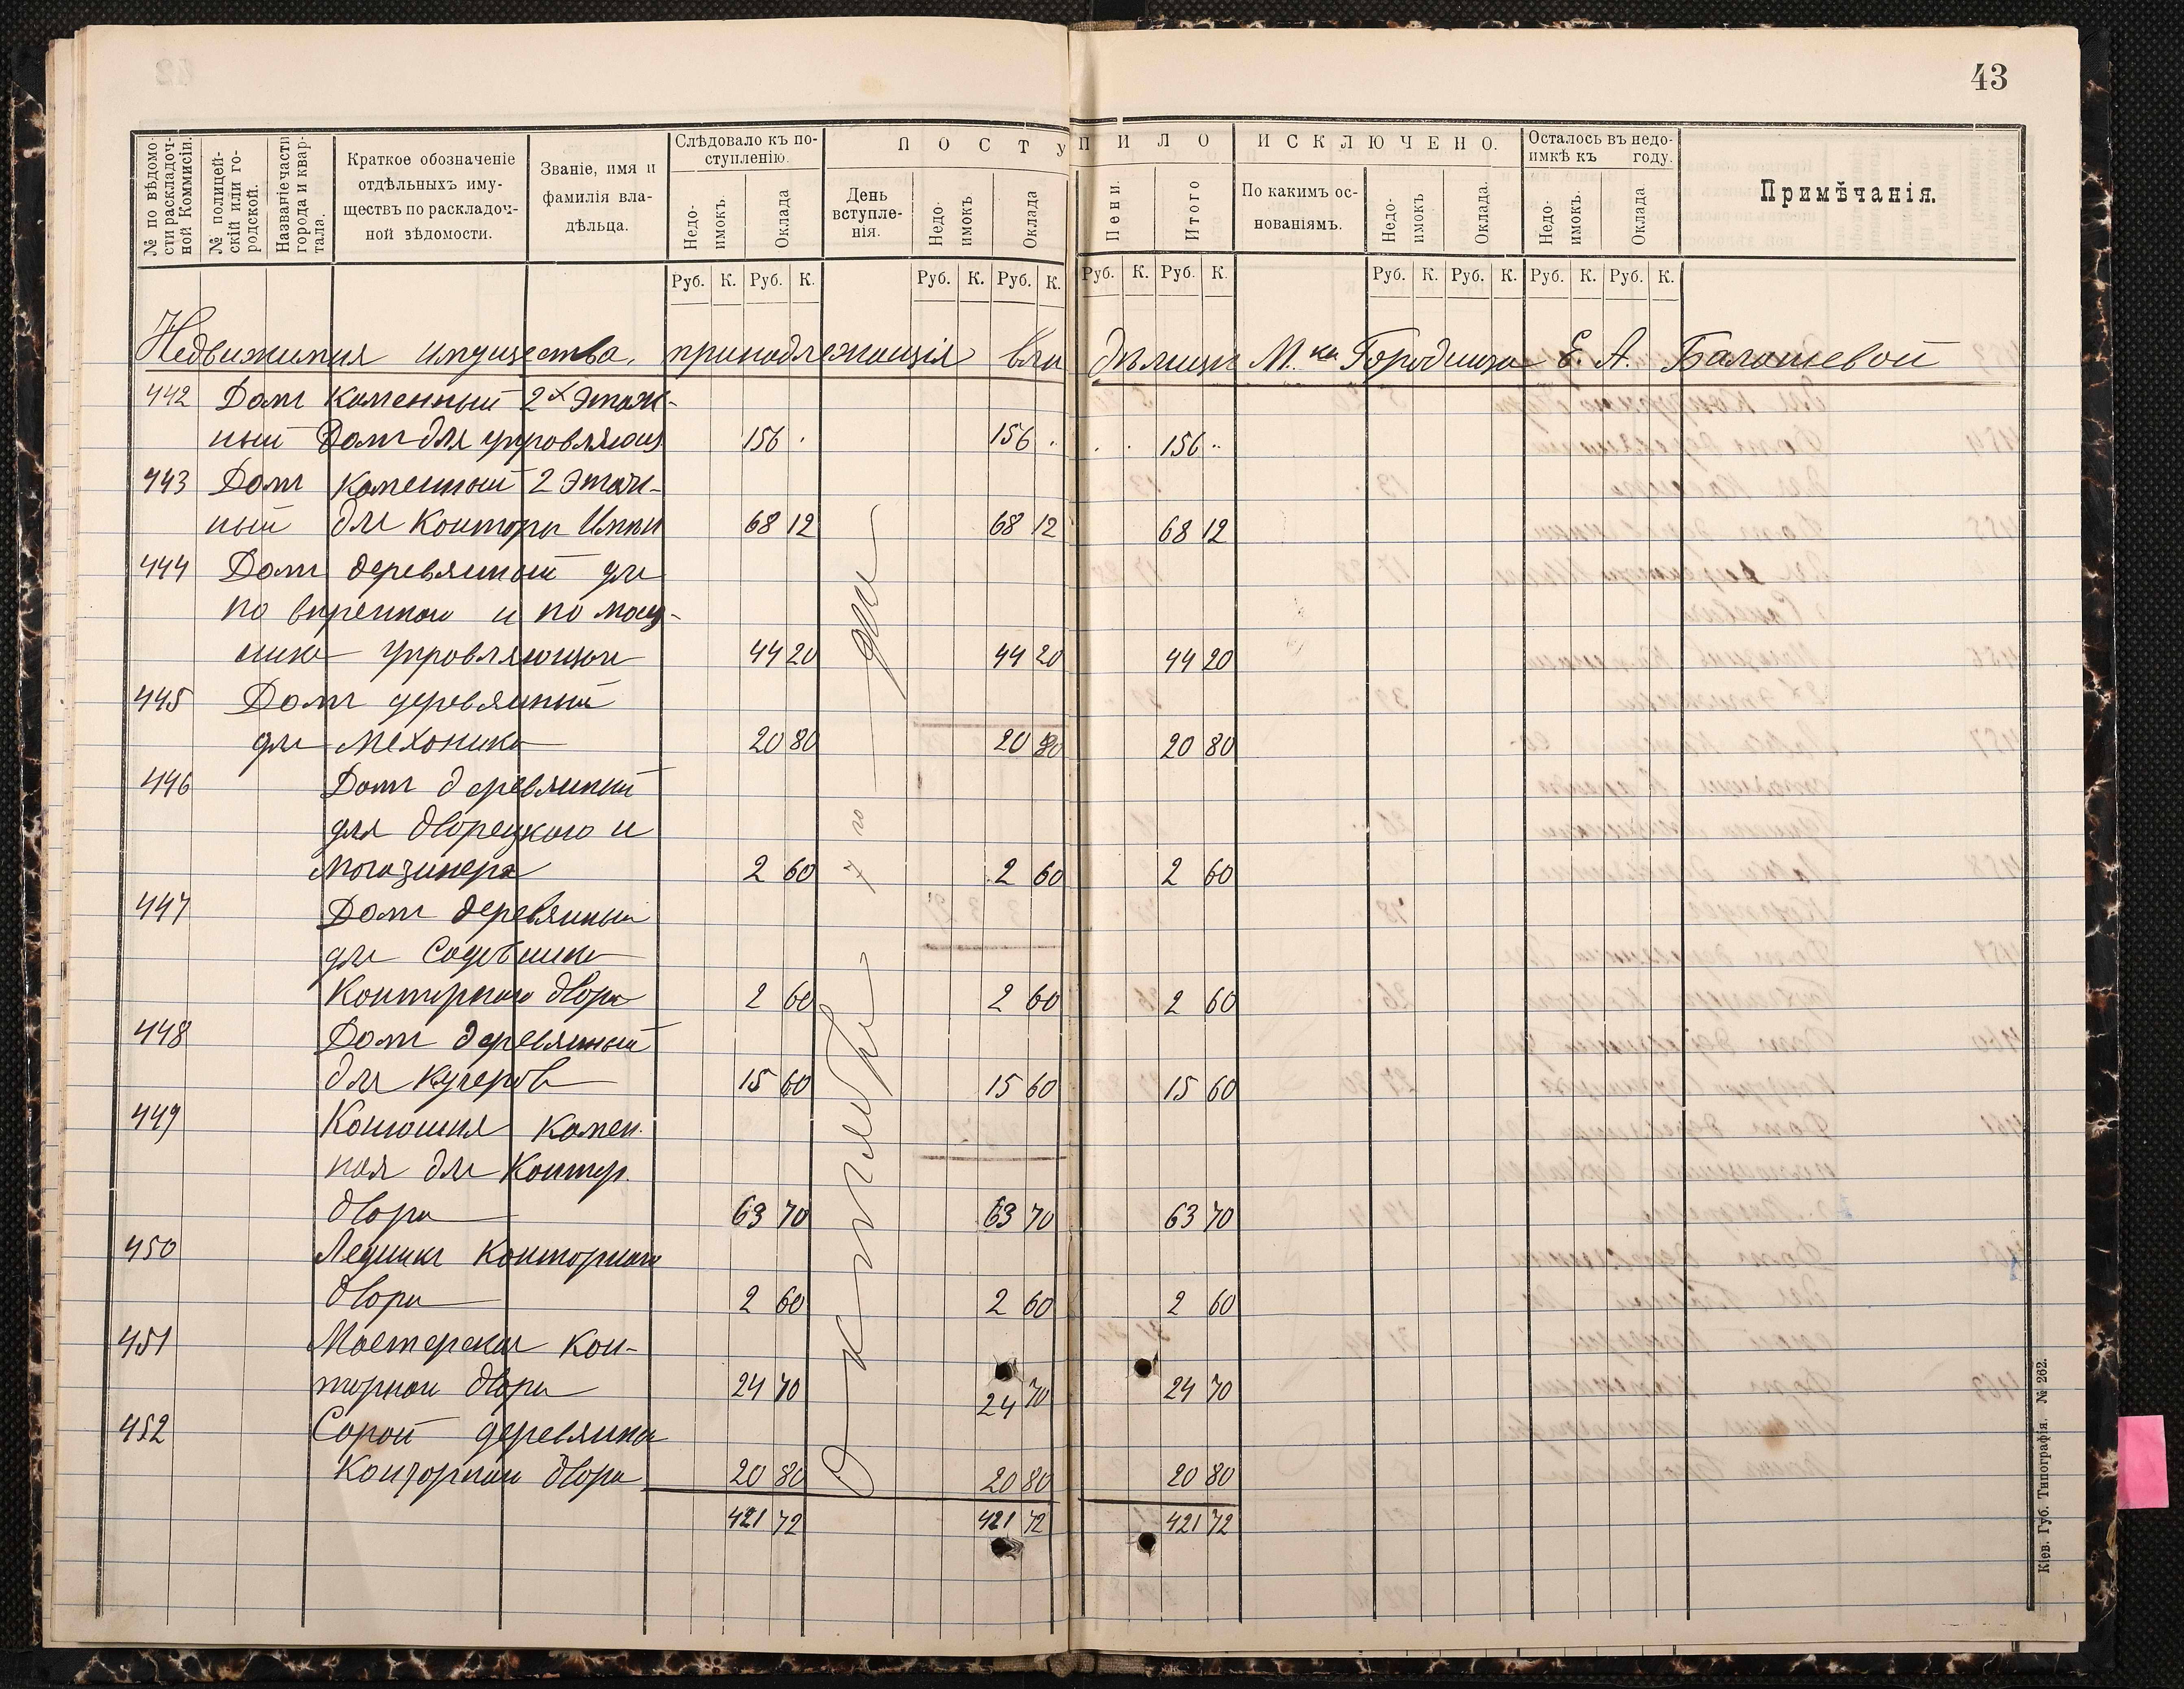 43
№ по вѣдомости раскладочной Коммисіи.
№ полицейскій или городской.
Названіе части города и квартала.
Краткое обозначеніе отдѣльныхъ имуществъ по раскладочной вѣдомости.
Званіе, имя и фамилія владѣльца.
Слѣдовало къ поступленію.
Недоимокъ.
Оклада
ПОСТУПИЛО
День вступленія.
Недоимокъ
Оклада
Пени.
Итого
ИСКЛЮЧЕНО.
По какимъ основаніямъ.
Недоимокъ
Оклада.
Осталось въ недоимкѣ къ году.
Недоимокъ.
Оклада.
Примѣчанія.
Руб. К. Руб. К. Руб. К. Руб. К. Руб. К. Руб. К. Руб. К. Руб. К. Руб. К. Руб. К.
Недвижимыя имущества, принадлежащія владѣлицѣ М.ка Городища Е. А. Балашевой
442 Домъ каменный 2х этаж-
ный Домъ для управляющ 156 . 156 .. . . 156 ..
443 Домъ каменный 2 этаж-
ный для Конторы 68 12 68 12 68 12
444 Домъ деревянный для
и помощ-
ника управляющаго 44 20 44 20 44 20
445 Домъ деревянный
для механика 20 80 20 80 20 80
446 Домъ деревянный
для дворецкого и
магазинера 2 60 2 60 2 60
447 Домъ деревянный
для садовника
Конторнаго двора 2 60 2 60 2 60
448 Домъ деревянный
для кучеров 15 60 15 60 15 60
449 Конюшня камен.
ная для Контор.
двора 63 70 63 70 63 70
450 Ледникъ Конторнаго
двора 2 60 2 60 2 60
451 Мастерская кон-
торнаго двора 24 70 24 70 24 70
452 Сарай деревянный
Конторнаго двора 20 80 20 80 20 80
421 72 421 72 421 72
7 го дня
Кіев. Губ. Типографія. № 262.